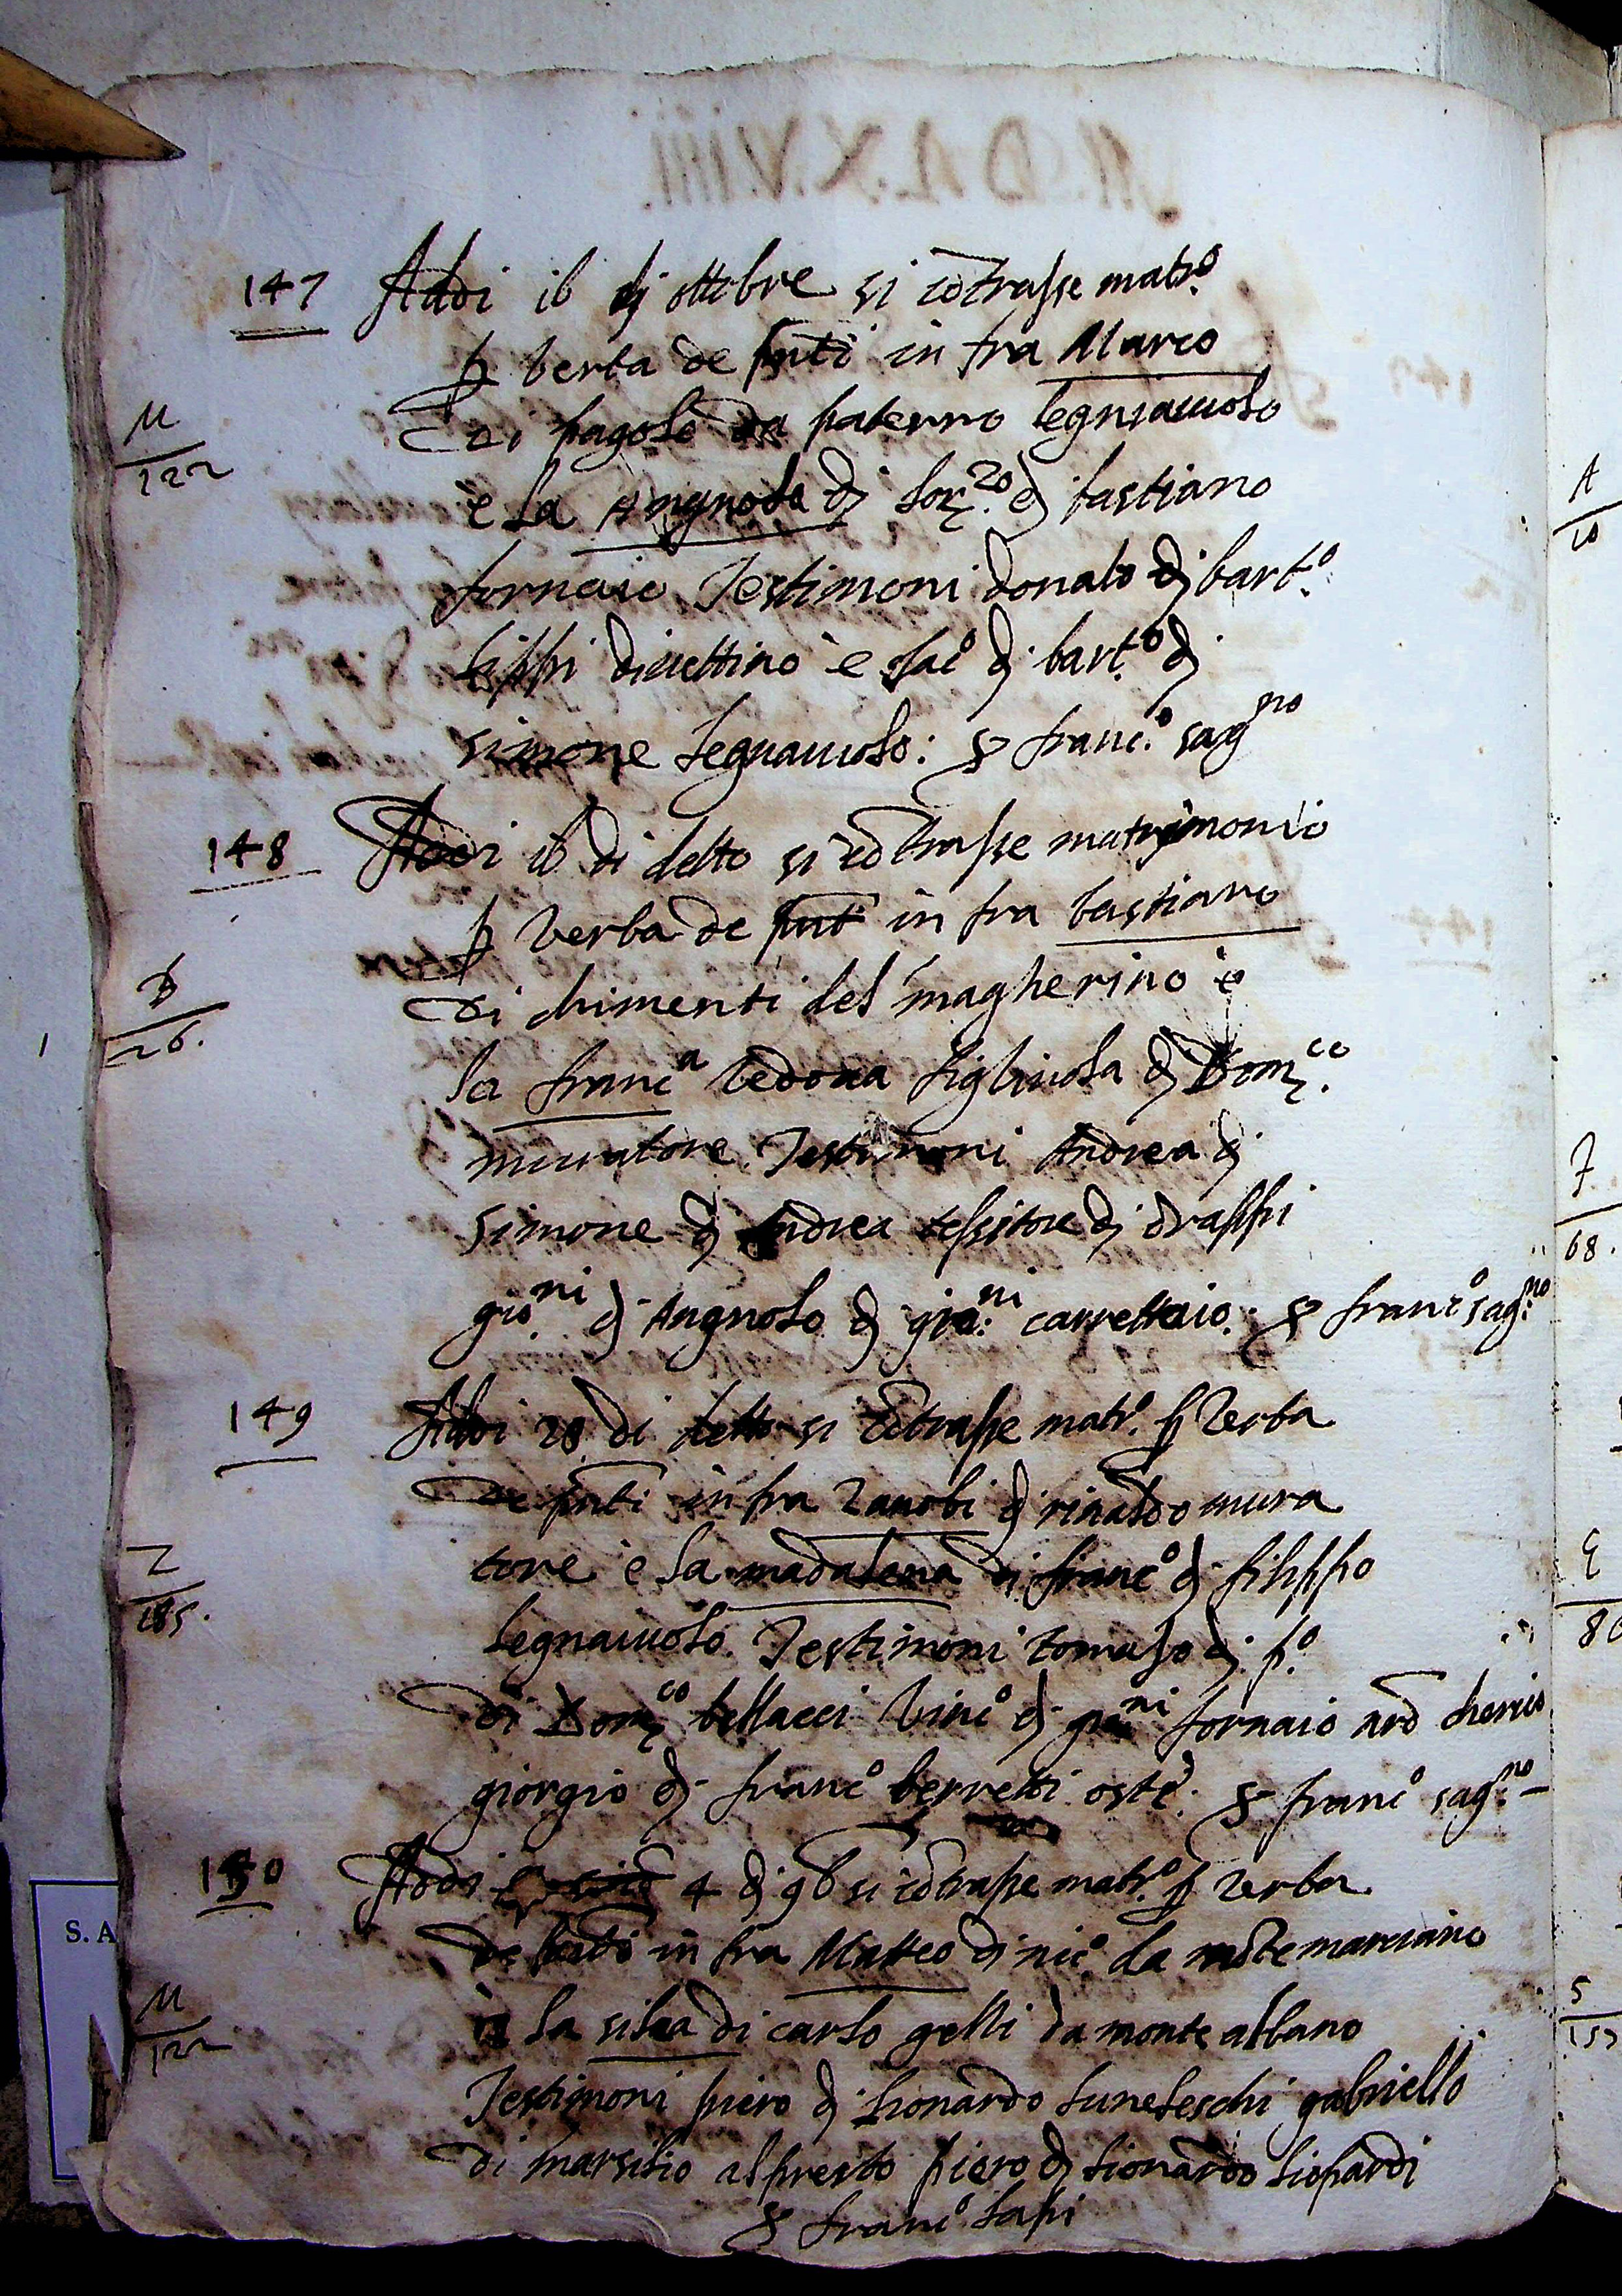 147 Addi il dj ottobre si cōtrasse matrº
p verba de pnti in fra Marco
M 122
di pagolo da paterno legniaiuolo
e la Angnola dj lorzo dj bastiano
fornaio Testimoni donato dj bartº
lippi e Jacº dj bartº dj
simone legnaiuolo: francº sagno
148 Addi il di detto si cōtrasse matrimonio
p verba de pnti in fra bastiano
B 26.
di chimenti del magherino e
la franca vedova figliuola dj Domco
muratore Testimoni Andrea dj
simone dj Andrea tessitore dj drappi
gioni dj Angnolo dj gioni carrettaio. francº sagno
149 Addi 28 di detto si cōtrasse matrº p verba
de pnti in fra Zanobi dj rinaldo mura
tore e la madalena di francº dj filippo
Z 185.
legnaiuolo Testimoni tomaso dj pº
di Domco bellacci Vincº dj gioni fornaio
giorgio dj francº berretti oste: francº sagno
150 Addi 4 dj 9b si cōtrasse matrº p verba
de pnti in fra Matteo di nicº da mōtemarciano
M 122
e la silva di carlo gelli da monte albano
Testimoni piero dj lionardo gabriello
di marsilio piero dj lionardo
francº lapi
A 10
F 68.
S 153